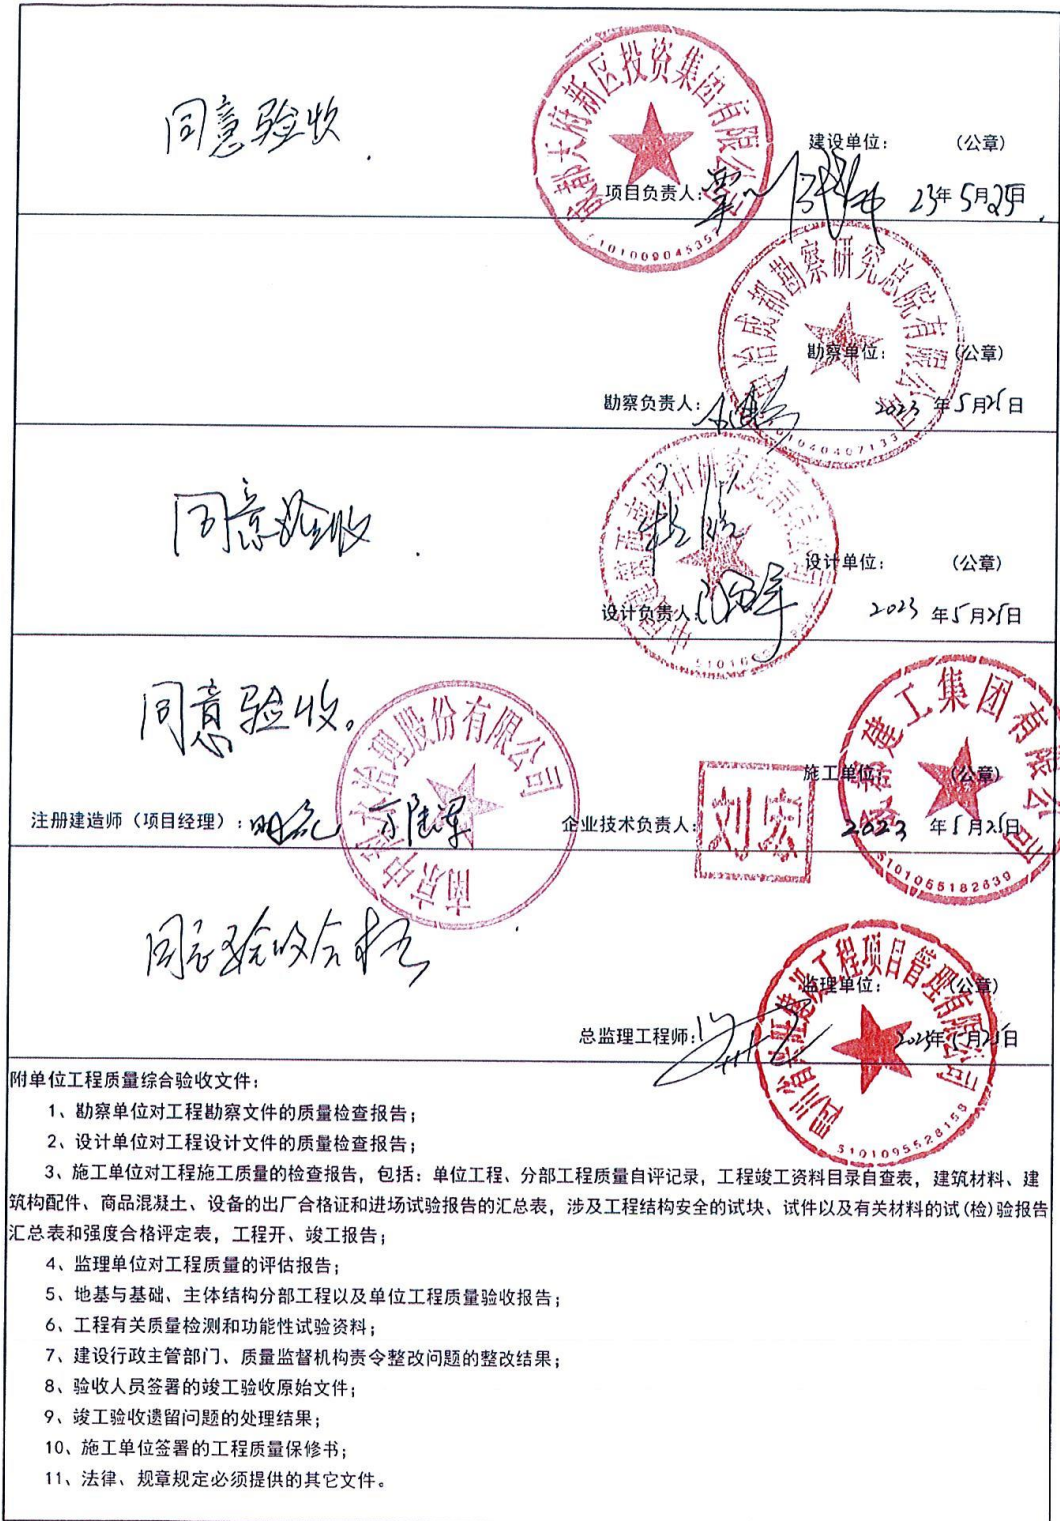 同意验收
成都天府新区投资集团有限公司
建设单位： （公章）
项目负责人： 23年5月25日
5101009045357
中冶成都勘察研究总院有限公司
勘察单位： （公章）
勘察负责人： 2023年5月25日
同意验收
设计单位： （公章）
设计负责人： 2023年5月25日
同意验收。
成都建工集团有限公司
施工单位： （公章）
南京中科水治理股份有限公司
注册建造师（项目经理）： 企业技术负责人： 刘宏 2023年5月25日
5101055182639
同意验收合格
监理单位： （公章）
总监理工程师： 2023年5月25日
5101095528155
附单位工程质量综合验收文件：
1、勘察单位对工程勘察文件的质量检查报告；
2、设计单位对工程设计文件的质量检查报告；
3、施工单位对工程施工质量的检查报告，包括：单位工程、分部工程质量自评记录，工程竣工资料目录自查表，建筑材料、建
筑构配件、商品混凝土、设备的出厂合格证和进场试验报告的汇总表，涉及工程结构安全的试块、试件以及有关材料的试(检)验报告
汇总表和强度合格评定表，工程开、竣工报告；
4、监理单位对工程质量的评估报告；
5、地基与基础、主体结构分部工程以及单位工程质量验收报告；
6、工程有关质量检测和功能性试验资料；
7、建设行政主管部门、质量监督机构责令整改问题的整改结果；
8、验收人员签署的竣工验收原始文件；
9、竣工验收遗留问题的处理结果；
10、施工单位签署的工程质量保修书；
11、法律、规章规定必须提供的其它文件。